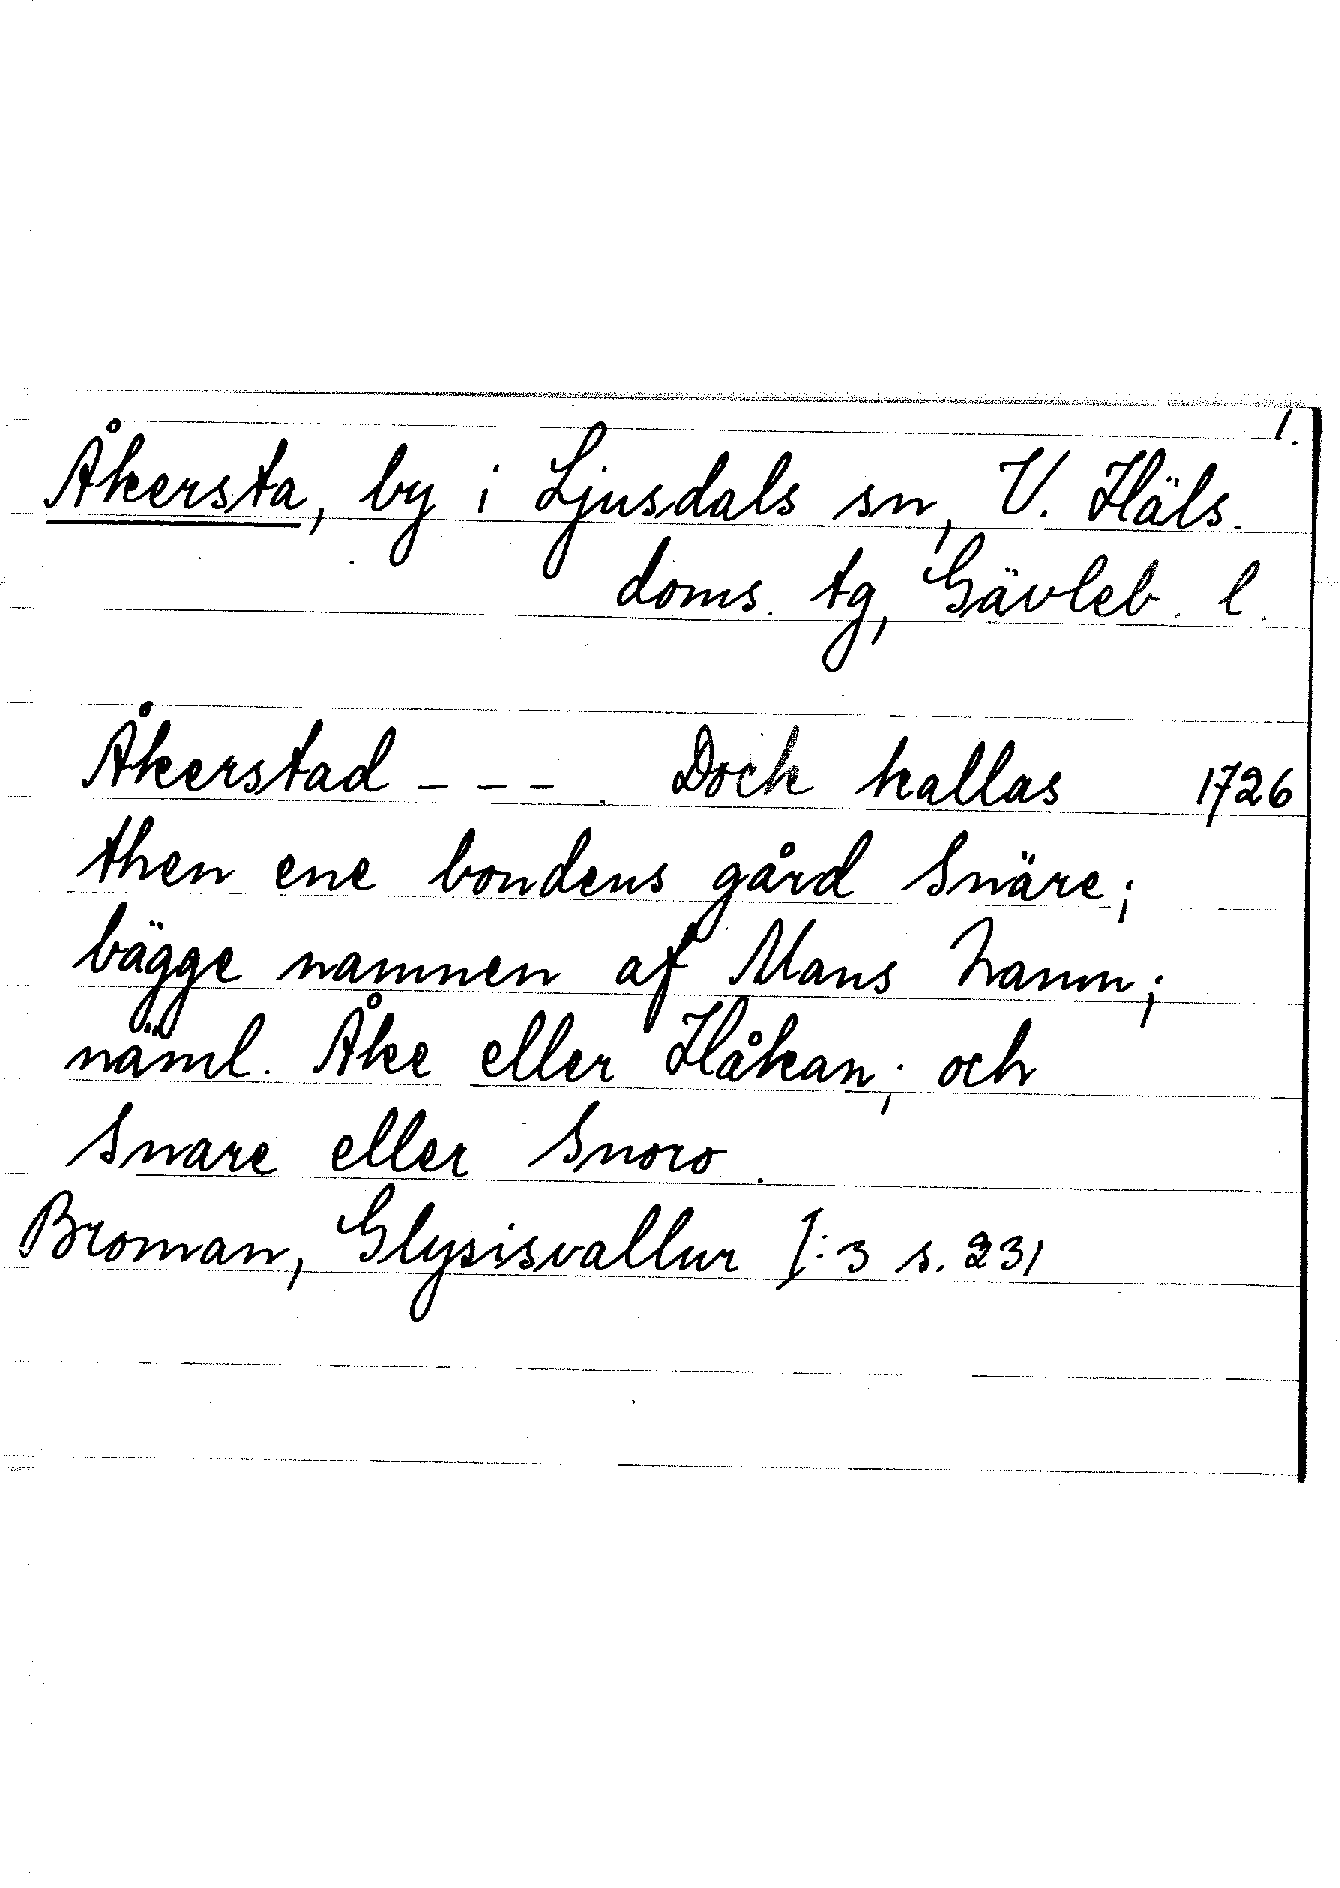 1.
Åkersta, by i Ljusdals sn, V. Häls.
doms. tg, Gävleb. l.
Åkerstad - - - . Dock kallas 1726
then ene bondens gård Snäre;
bägge namnen af Mans Namn;
näml. Åke eller Håkan; och
Snare eller Snoro.
Broman, Glysisvallur I:3 s. 231